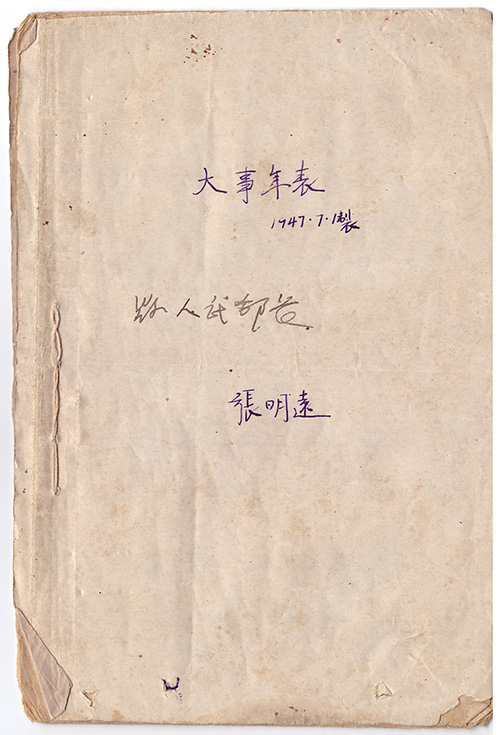 大事年表
1947.7.1製
人民部長
張明遠